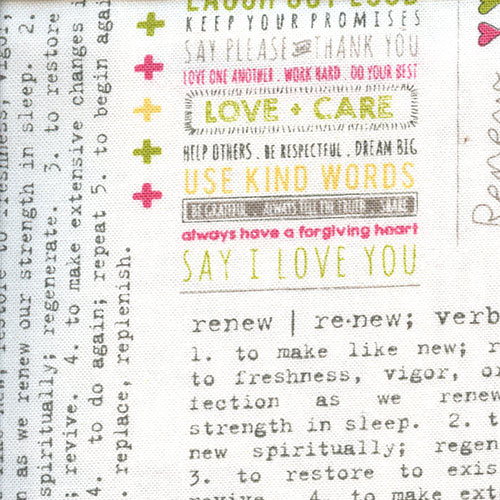 LAUGH OUT LOUD
KEEP YOUR PROMISES
SAY PLEASE AND THANK YOU
LOVE ONE ANOTHER . WORK HARD . DO YOUR BEST
LOVE + CARE
HELP OTHERS . BE RESPECTFUL . DREAM BIG
USE KIND WORDS
BE GRATEFUL . ALWAYS TELL THE TRUTH . SHARE
always have a forgiving heart
SAY I LOVE YOU
renew | re·new; verb
1. to make like new; r
to freshness, vigor, or
fection as we renew
strength in sleep. 2. t
new spiritually; regen
3. to restore to exis
revive. 4. to make ext
to freshness, vigor,
n as we renew our strength in sleep. 2.
spiritually; regenerate. 3. to restore
; revive. 4. to make extensive changes i
4. to do again; repeat 5. to begin again
. replace, replenish.